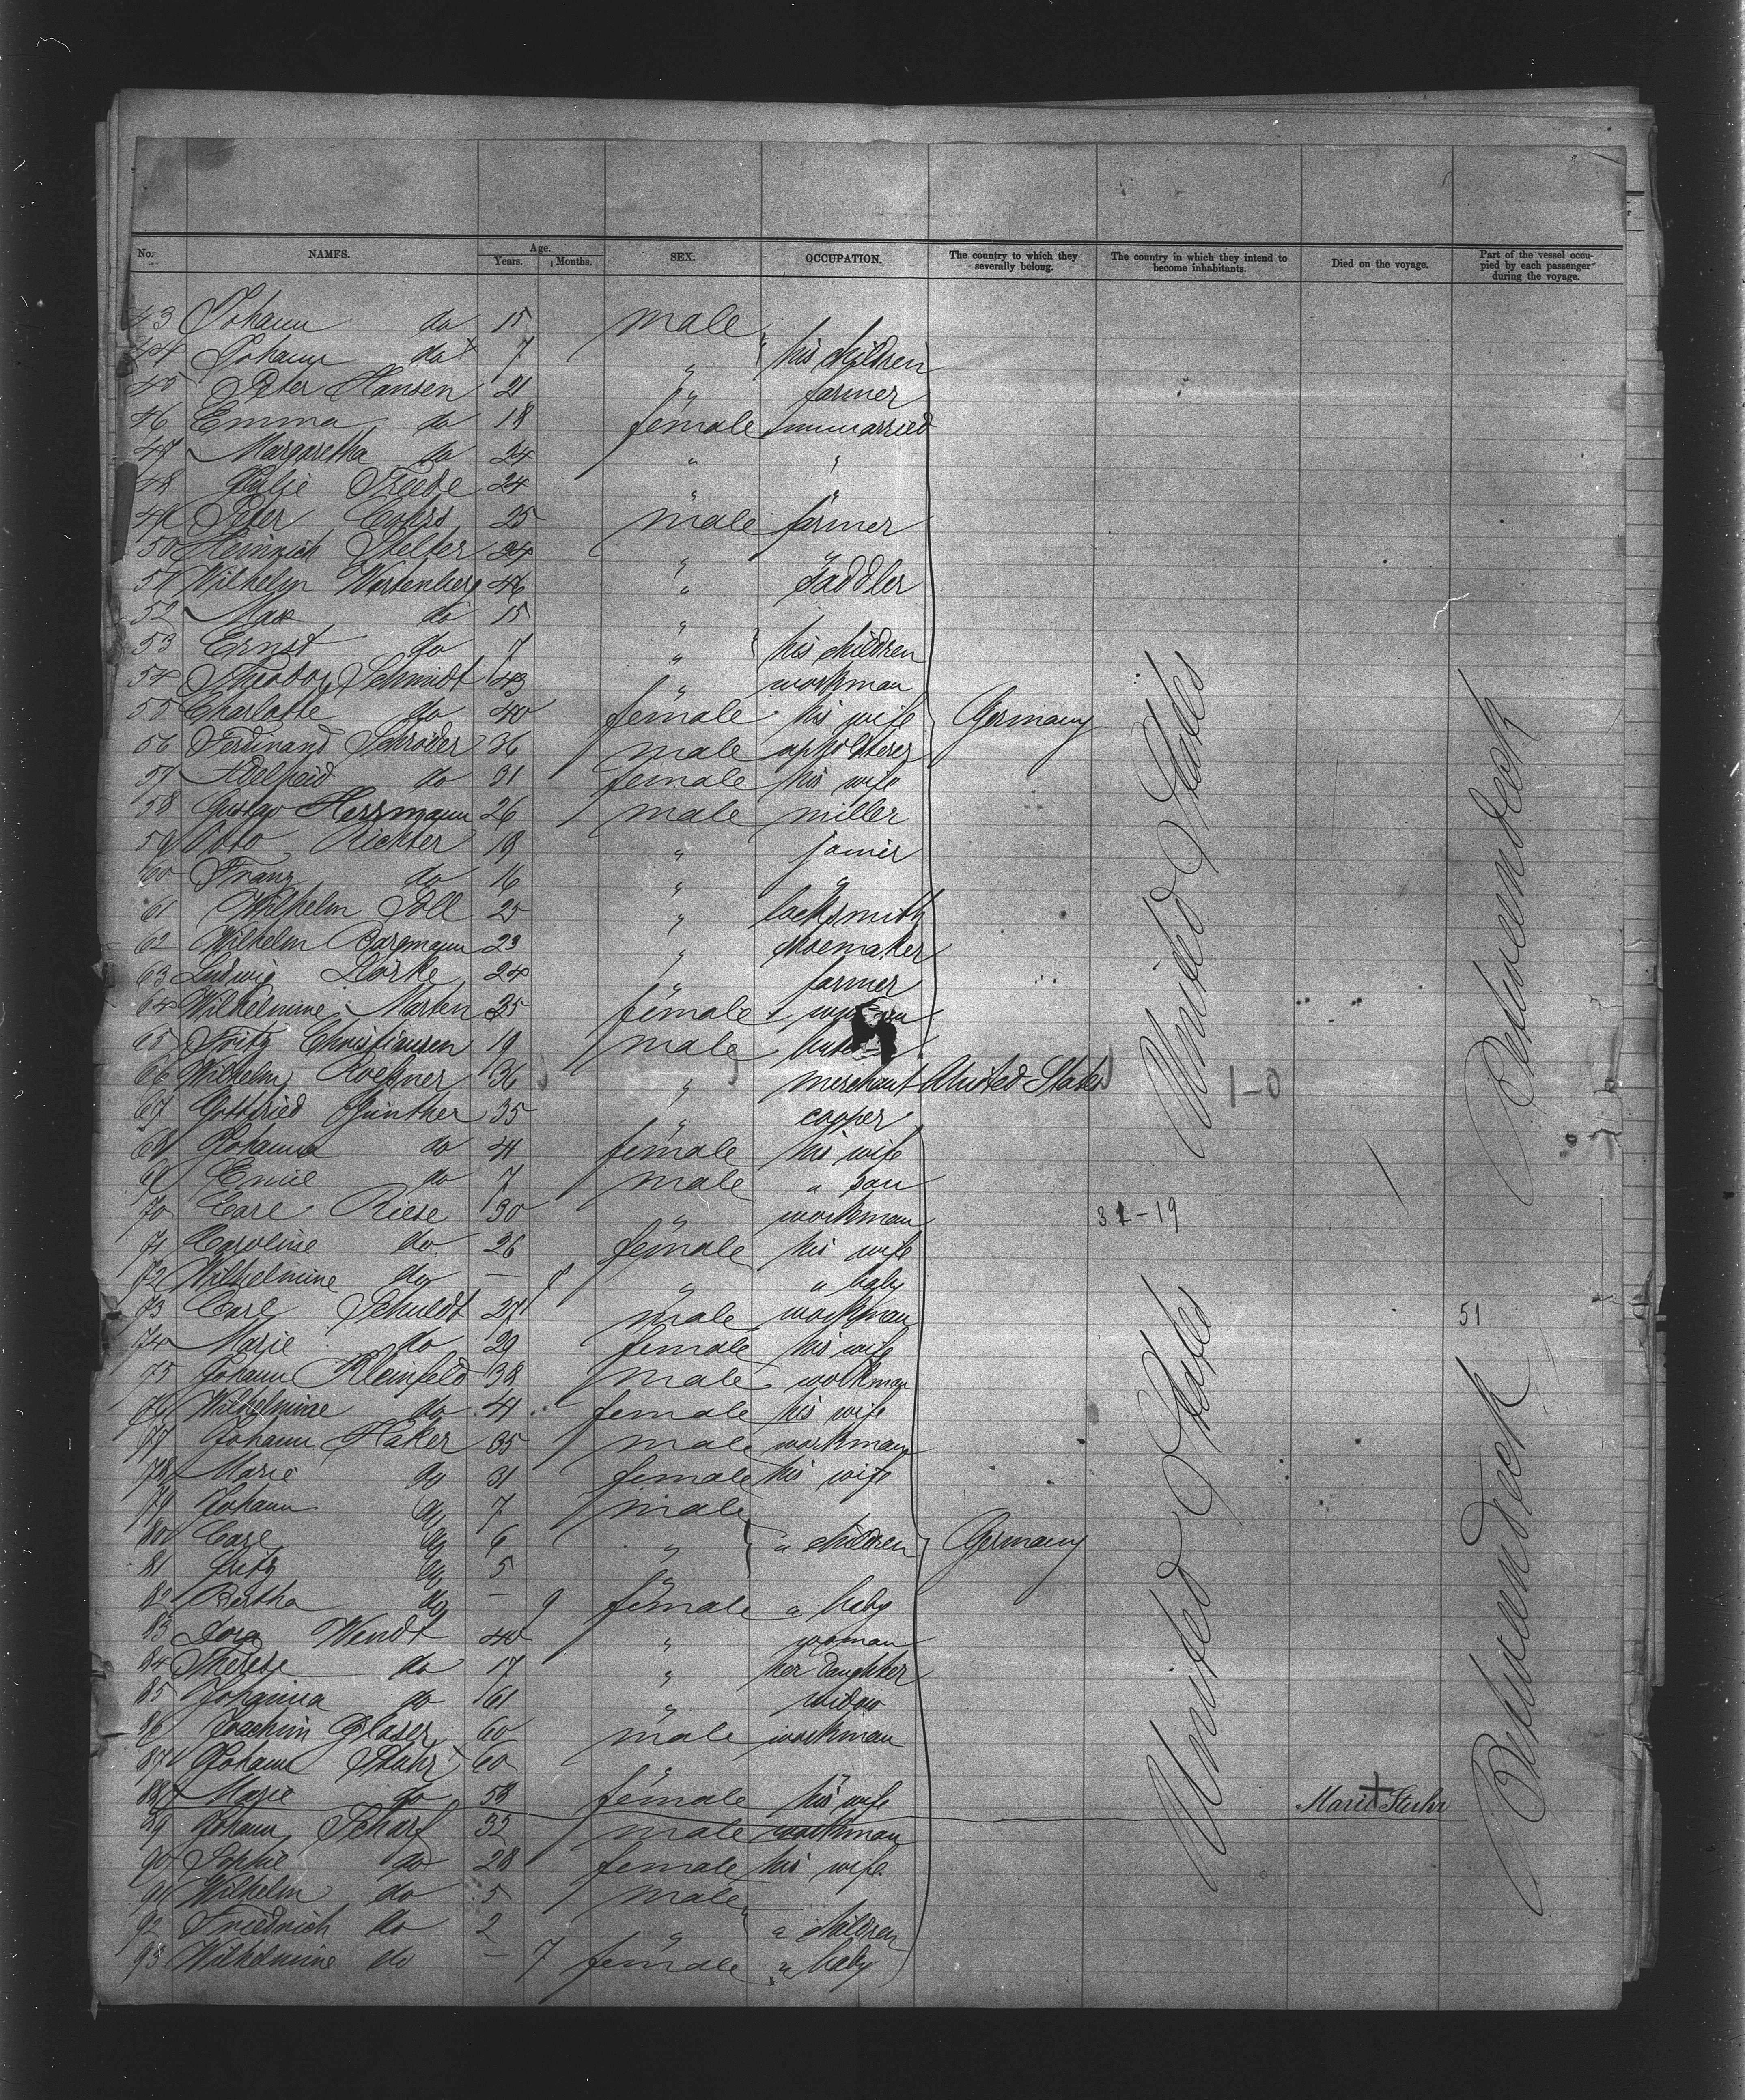 No. NAMES. Age. Years. Months. SEX. OCCUPATION. The country to which they severally belong. The country in which they intend to become inhabitants. Died on the voyage. Part of the vessel occupied by each passenger during the voyage.
43 Johann do 15 male
44 Johann do 7 " his children
45 Peter Hansen 21 " farmer
46 Emma do 18 female unmarried
47 Margaretha do 24 " "
48 Freede 24 " "
49 Peter 25 male farmer
50 Heinrich Stelter 24 " "
51 Wilhelm Wartenberg 46 " saddler
52 Max do 15 "
53 Ernst do 7 " his children
54 Theodor Schmidt 43 " workman
55 Charlotte do 40 female his wife Germany
56 Ferdinand Schröder 36 male upholsterer
57 Adelheid do 31 female his wife
58 Gustav Herrmann 26 male miller
59 Otto Richter 19 " joiner
60 Franz do 16 " "
61 Wilhelm Poll 25 " locksmith
62 Wilhelm Bargmann 23 " shoemaker
63 Ludwig 24 " farmer
64 Wilhelmine Marten 25 female
65 Fritz Christiansen 19 male
66 Wilhelm 36 " merchant United States
67 Gottfried Günther 35 " cooper
68 Johanna do 41 female his wife
69 Emil do 7 male " son
70 Carl Riese 30 " workman
71 Caroline do 26 female his wife
72 Wilhelmine do — " " baby
73 Carl Schuldt 27 male workman
74 Marie do 29 female his wife
75 Johann Kleinfeld 38 male workman
76 Wilhelmine do 41 female his wife
77 Johann Haker 35 male workman
78 Marie do 31 female his wife
79 Johann do 7 male
80 Carl do 6 " " children Germany
81 Fritz do 5 "
82 Bertha do — 9 female " baby
83 Dora Wendt 40 " woman
84 Therese do 17 " her daughter
85 Johanna do 61 " widow
86 Joachim Glaser 60 male workman
87 Johann Stuhr 60 " "
88 Marie do 58 female his wife Marie Stuhr
89 Johann Scharf 32 male workman
90 Sophie do 28 female his wife
91 Wilhelm do 5 male
92 Friedrich do 2 " " children
93 Wilhelmine do — 7 female " baby
United States
United States
Betweendeck
Betweendeck
1-0
32-19
51